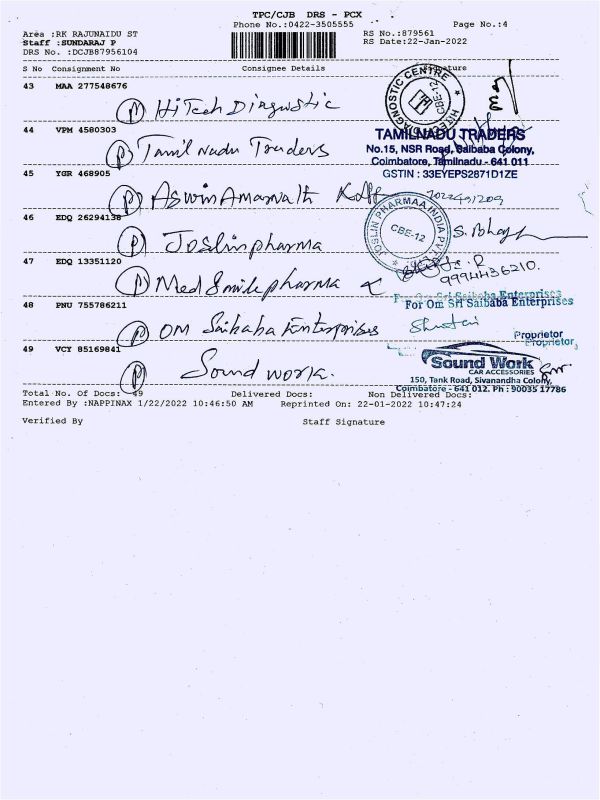 TPC/CJB DRS - PCX
Phone No.:0422-3505555 Page No.:4
Area :RK RAJUNAIDU ST RS No.:879561
Staff :SUNDARAJ P RS Date:22-Jan-2022
DRS No. :DCJB87956104
S No Consignment No Consignee Details Signature
43 MAA 277548676
(P) HiTech Diagnostic
DIAGNOSTIC CENTRE CBE-12
44 VPM 4580303
(P) Tamil nadu Traders
TAMILNADU TRADERS
No.15, NSR Road, Saibaba Colony,
Coimbatore, Tamilnadu - 641 011
GSTIN : 33EYEPS2871D1ZE
45 YGR 468905
(P) Aswin Amarnath
46 EDQ 26294138
(P) Joslin pharma
JOSLIN PHARMAA INDIA PVT CBE-12
47 EDQ 13351120
(P) Med Smile pharma
9994436210.
48 PNU 755786211
(P) OM Saibaba Enterprises
For Om Sri Saibaba Enterprises
For Om Sri Saibaba Enterprises
Proprietor
Proprietor
49 VCT 85169841
(P) Sound work.
Sound Work
CAR ACCESSORIES
150, Tank Road, Sivanandha Colony,
Coimbatore - 641 012. Ph : 90035 17786
Total No. Of Docs: 49 Delivered Docs: Non Delivered Docs:
Entered By :NAPPINAX 1/22/2022 10:46:50 AM Reprinted On: 22-01-2022 10:47:24
Verified By Staff Signature